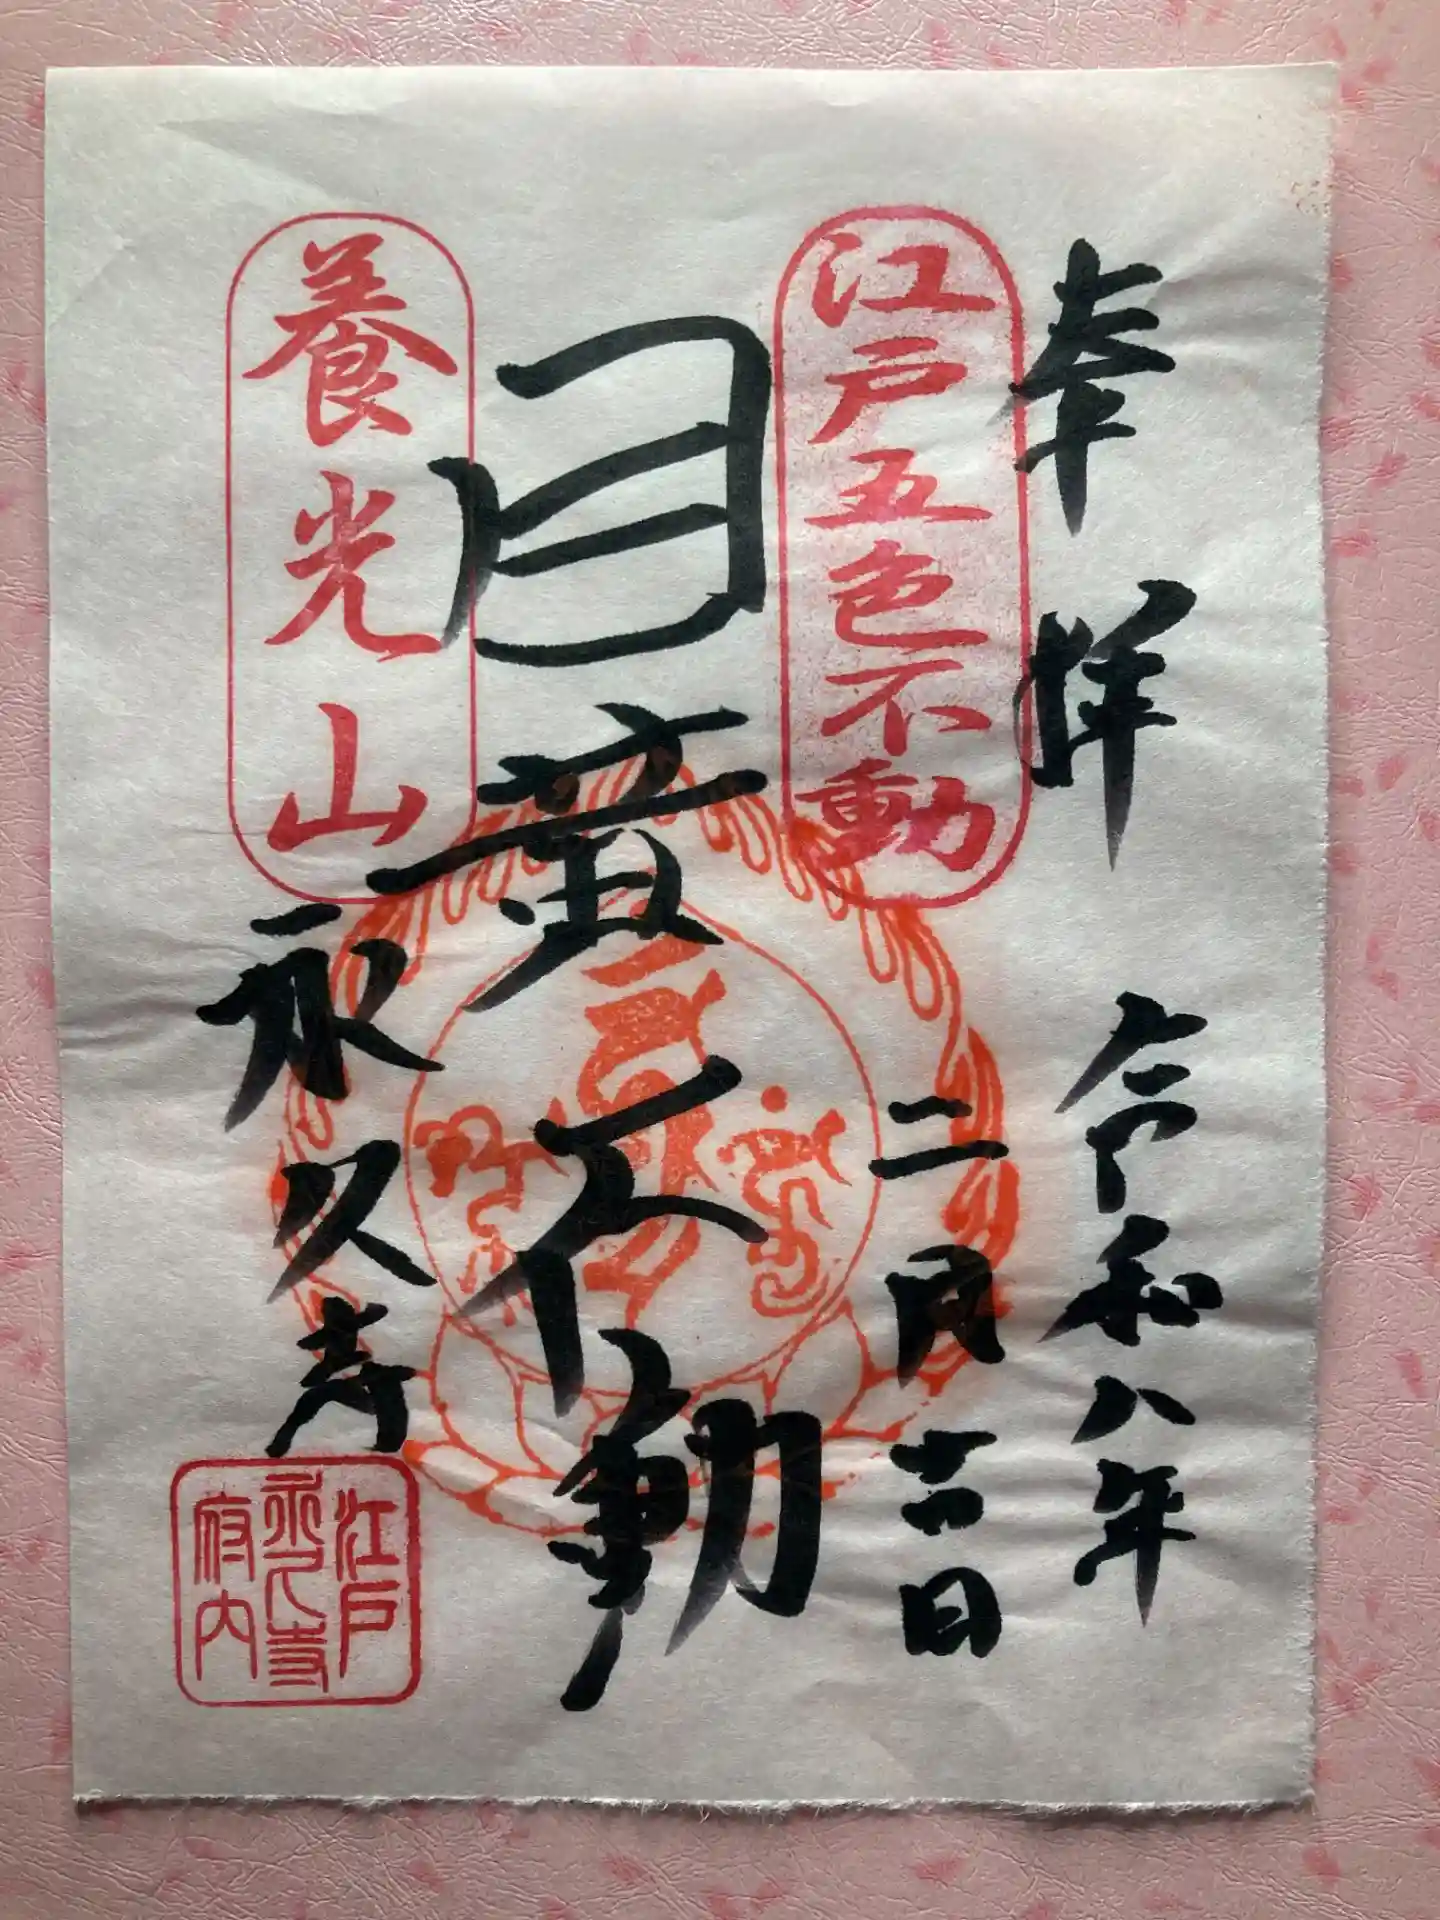 奉拝
令和八年
二月吉日
江戸五色不動
目黄不動
養光山
永久寺
江戸
永久寺
府内